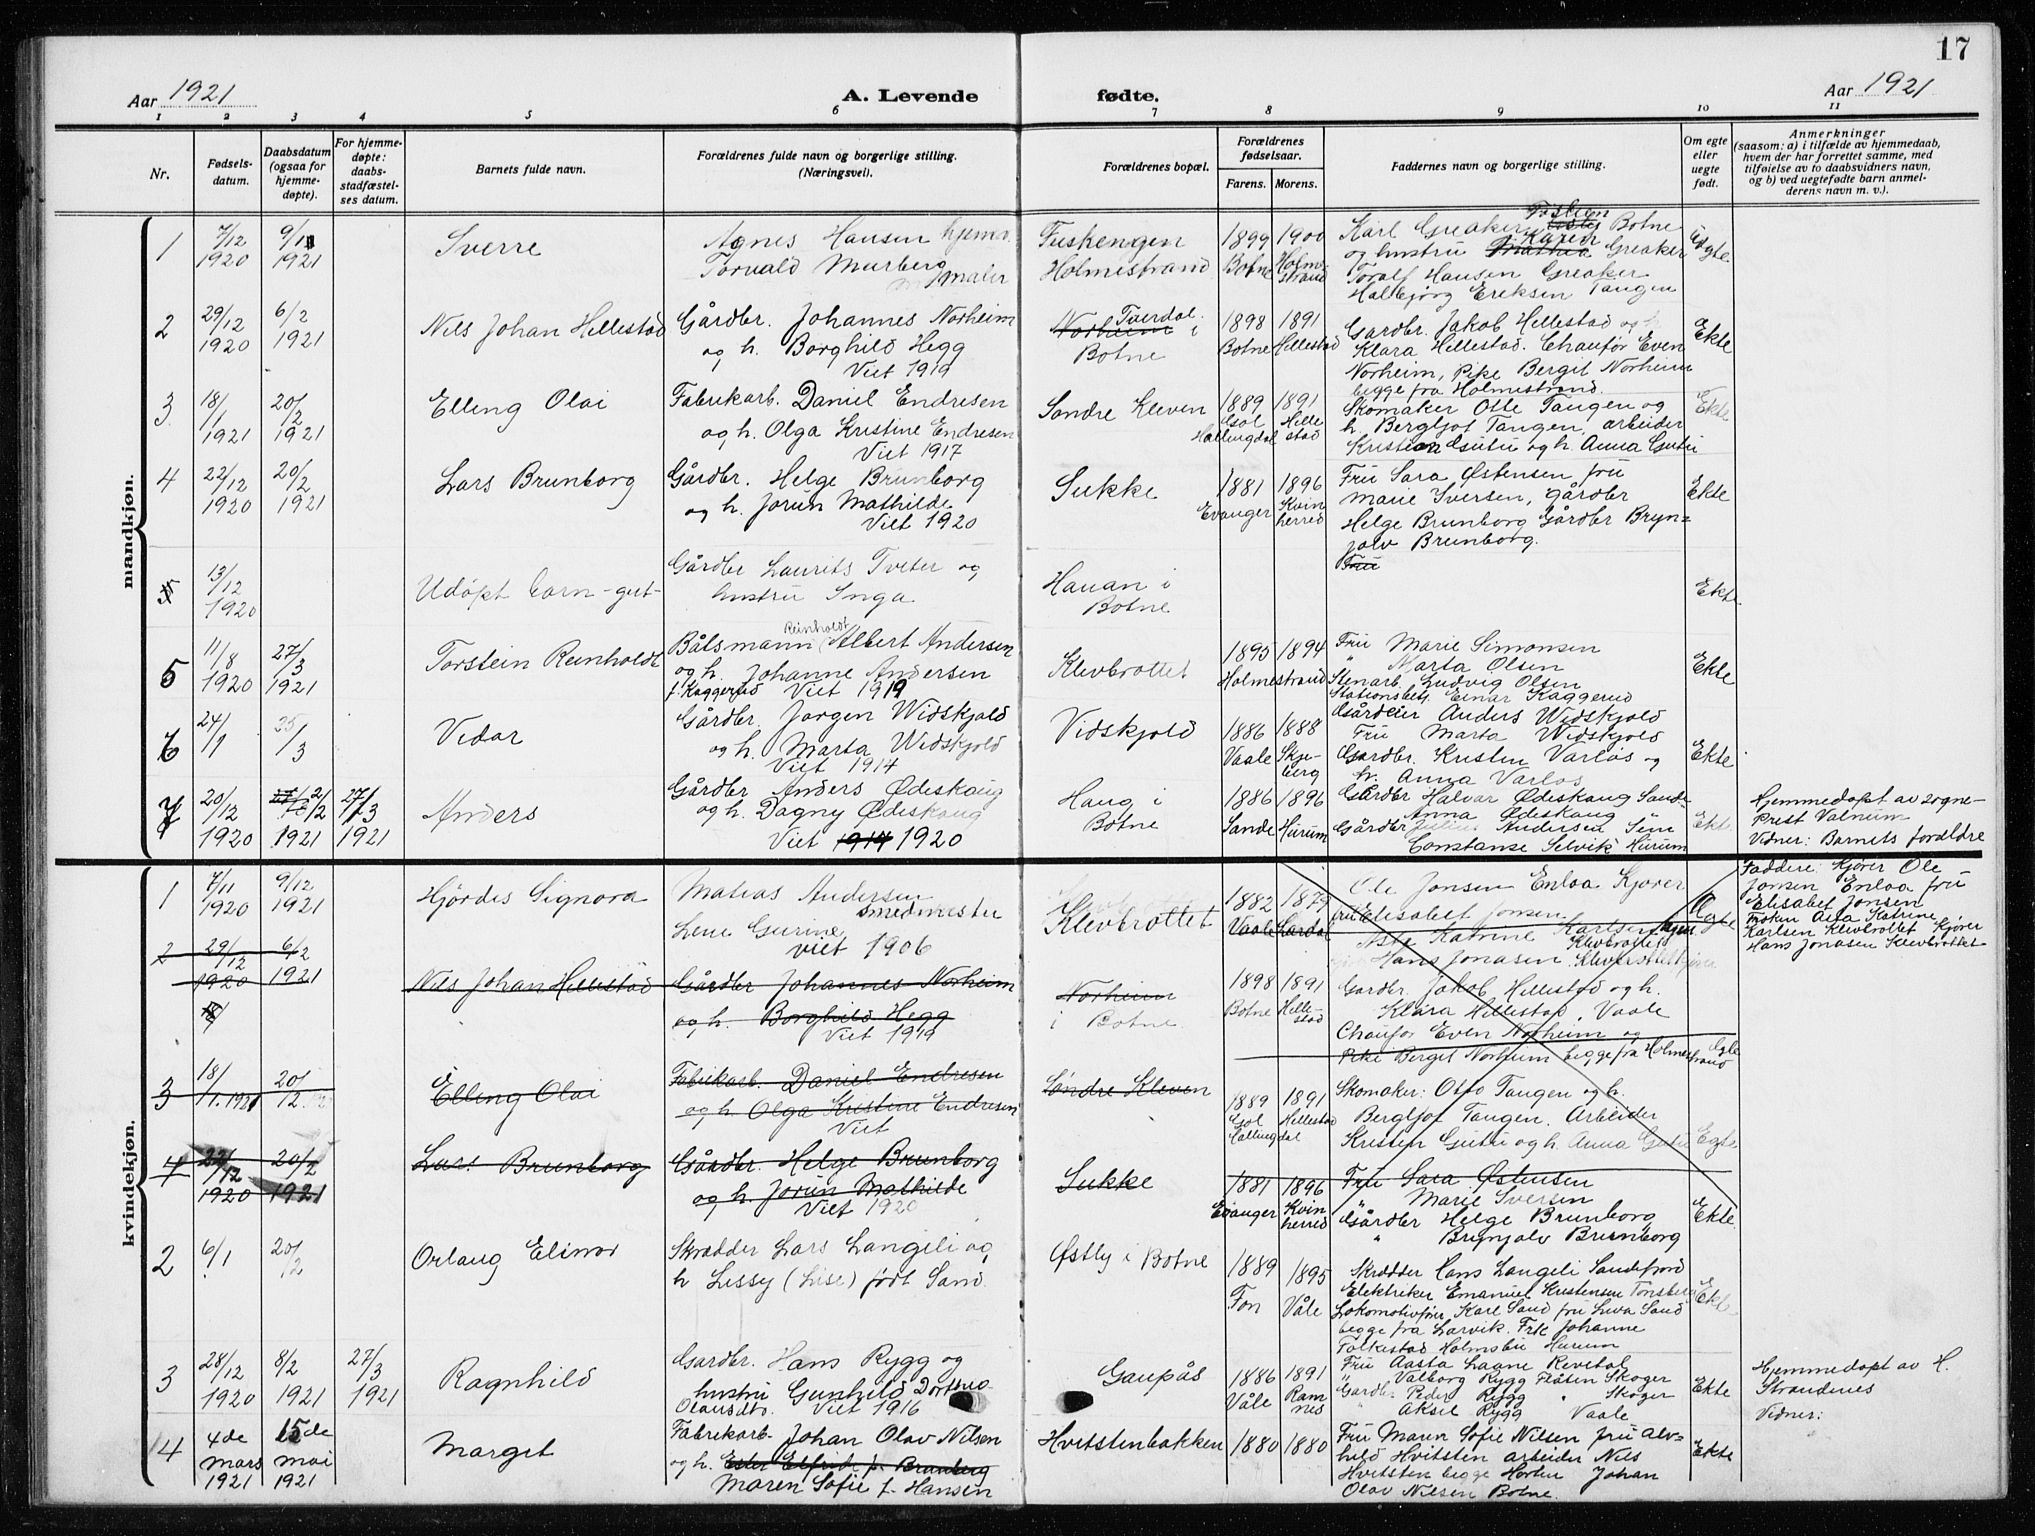 17
Aar 1921
A. Levende fødte.
Aar 1921
1 2 3 4 5 6 7 8 9 10 11
Nr.
Fødsels-
datum.
Daabsdatum
(ogsaa for
hjemme-
døpte).
For hjemme-
døpte:
daabs-
stadfæstel-
ses datum.
Barnets fulde navn.
Forældrenes fulde navn og borgerlige stilling.
(Næringsvei).
Forældrenes bopæl.
Forældrenes
fødselsaar.
Farens. Morens.
Faddernes navn og borgerlige stilling.
Om egte
eller
uegte
født.
Anmerkninger
(saasom: a) i tilfælde av hjemmedaab,
hvem der har forrettet samme, med
tilføielse av to daabsvidners navn,
og b) ved uegtefødte barn anmel-
derens navn m. v.).
mandkjøn.
1
7/12
1920
9/1
1921
Sverre
Agnes Hansen hjemv.
Torvald Murberg
maler
Fuskengen
Holmestrand
1899 1900
Botne Holm-
strand
Karl Greaker Botne
og hustru Karen Greaker
Toralf Hansen Greaker
Halbjørg Ereksen Tangen
Egte
2
29/12
1920
6/2
1921
Nils Johan Hillestad
Gårdbr. Johannes Norheim
og h. Borghild Hegg
Viet 1919
Tverdal
Norheim i
Botne
1898 1891
Botne Hillestad
Gardbr. Jakob Hillestad og
Klara Hillestad. Chaufør Even
Norheim, Pike Bergit Norheim
begge fra Holmestrand.
Ekte
3
18/1
1921
20/2
1921
Elling Olai
Fabrikarb. Daniel Endresen
og h. Olga Kristine Endresen
Viet 1917
Søndre Kleven
1889 1891
Gol Hille
Hallingdal stad
Skomaker Otto Tangen og
h. Bergljot Tangen, arbeider
Kristian Gutu og h. Anna Gutu
Ekte
4
22/12
1920
20/2
1921
Lars Brunborg
Gårdbr. Helge Brunborg
og h. Jorun Mathilde
Viet 1920
Sukke
1881 1896
Evanger Kvin
herred
Fru Sara Østensen fru
Marie Iversen, Gårdbr
Helge Brunborg Gårdbr Bryn=
jolv Brunborg.
Fru
Ekte
5
13/12
1920
Udøpt barn - gut-
Gårdbr Laurits Tveter og
hustru Inga
Hauan i
Botne
Ekte
5
11/8
1920
27/3
1921
Torstein Reinholdt
Reinholdt
Båtsmann Albert Andersen
og h. Johanne Andersen
f. Kaggerud Viet 1919
Klevbrottet
1895 1894
Holmestrand
Fru Marie Simonsen
" Marta Olsen
Stenarb. Ludvig Olsen
Stationsbetj. Einar Kaggerud
Ekte
6
24/1
25/3
Vidar
Gårdbr. Jørgen Widskjold
og h. Marta Widskjold
Viet 1914
Vidskjold
1886 1888
Vaale Skje-
berg
Gårdeier Anders Widskjold
Fru Marta Widskjold
Gardbr. Kristen Varløs og
fr. Anna Varløs
Ekte
7
20/12
1920
2/2
1921
27/3
1921
Anders
Gårdbr Anders Ødeskaug
og h. Dagny Ødeskaug
Viet 1914 1920
Haug i
Botne
1886 1896
Sande Hurum
Gårdbr Halvar Ødeskaug Sande
Anna Ødeskaug "
Gårdbr Julius Andersen Sem
Constanse Selvik Hurum
Ekte
Hjemmedøpt av sogne-
prest Valnum
Vidner: Barnets forældre
kvindekjøn.
1
7/11
1920
9/12
1921
Hjørdis Signora
Matias Andersen
smedmester
Lene Gurine
viet 1906
Klevbrottet
1882 1879
Vaale Lardal
Ole Jonsen Enloa Kjører
fru Elisabet Jonsen
Aste Katrine Karlsen
Klevbrottet
Hans Jonasen Klevbrottet kjører
Egte
Faddere Kjører Ole
Jonsen Enloa fru
Elisabet Jonsen
Frøken Asta Katrine
Karlsen Klevbrottet Kjører
Hans Jonasen Klevbrottet
2
29/12
1920
6/2
1921
Nils Johan Hillestad
Gårdbr Johannes Norheim
og h. Borghild Hegg
Viet 1919
Norheim
i Botne
1898 1891
Botne Hille-
stad
Gardbr. Jakob Hillestad og h.
Klara Hillestad, Vaale
Chaufør Even Norheim og
Pike Berget Norheim begge fra Holmestrand
Egte
3
18/1. 1921
20/2
Elling Olai
Fabrikarb. Daniel Endresen
og h. Olga Kristine Endresen
Viet
Søndre Kleven
1889 1891
Gol Hillestad
Hallingdal
Skomaker: Otto Tangen og h.
Bergljot Tangen. Arbeider
Kristen Gutu og h. Anna Gutu
Egte
4
22/12
1920
20/2
1921
Lars Brunborg
Gårdbr. Helge Brunborg
og h. Jorun Mathilde
Viet 1920
Sukke
1881 1896
Evanger Kvin
herred
Fru Sara Østensen
" Marie Iversen
Gårdbr Helge Brunborg
" Brynjolv Brunborg
Ekte
2
6/1
20/2
Orlaug Elinor
Skrædder Lars Langeli og
h Lissy (Lise) født Sand
Østby i Botne
1889 1895
Fon Våle
Skrædder Hans Langeli Sandefjord
Elektriker Emanuel Kristensen Tønsberg
Lokomotivfører Karl Sand fru Liva Sand
begge fra Larvik. Frk Johanne
Folkestad Holmsbu Hurum
Ekte
3
28/12
1920
8/2
1921
27/3
1921
Ragnhild
Gardbr. Hans Rygg og
hustru Gunhild Dorthea
Olausdtr. Viet 1916
Gaupås
1886 1891
Våle Ram
nes
Fru Aasta Lagne Revetal
" Valborg Rygg Flåten Skoger
Gardbr Peder Rygg " Skoger
" Aksel Rygg Vaale
Ekte
Hjemmedøpt av H.
Strandenes
Vidner:
4
4de
mars
1921
15de
mai
1921
Margit
Fabrikarb. Johan Olav Nilsen
og h. Ester Elfride f. Branberg
Maren Sofie f. Hansen
Hvitstenbakken
1880 1880
Fru Maren Sofie Nilsen fru Alv=
hild Hvitsten arbeider Nils
Hvitsten begge Horten Johan
Olav Nilsen Botne.
Ekte